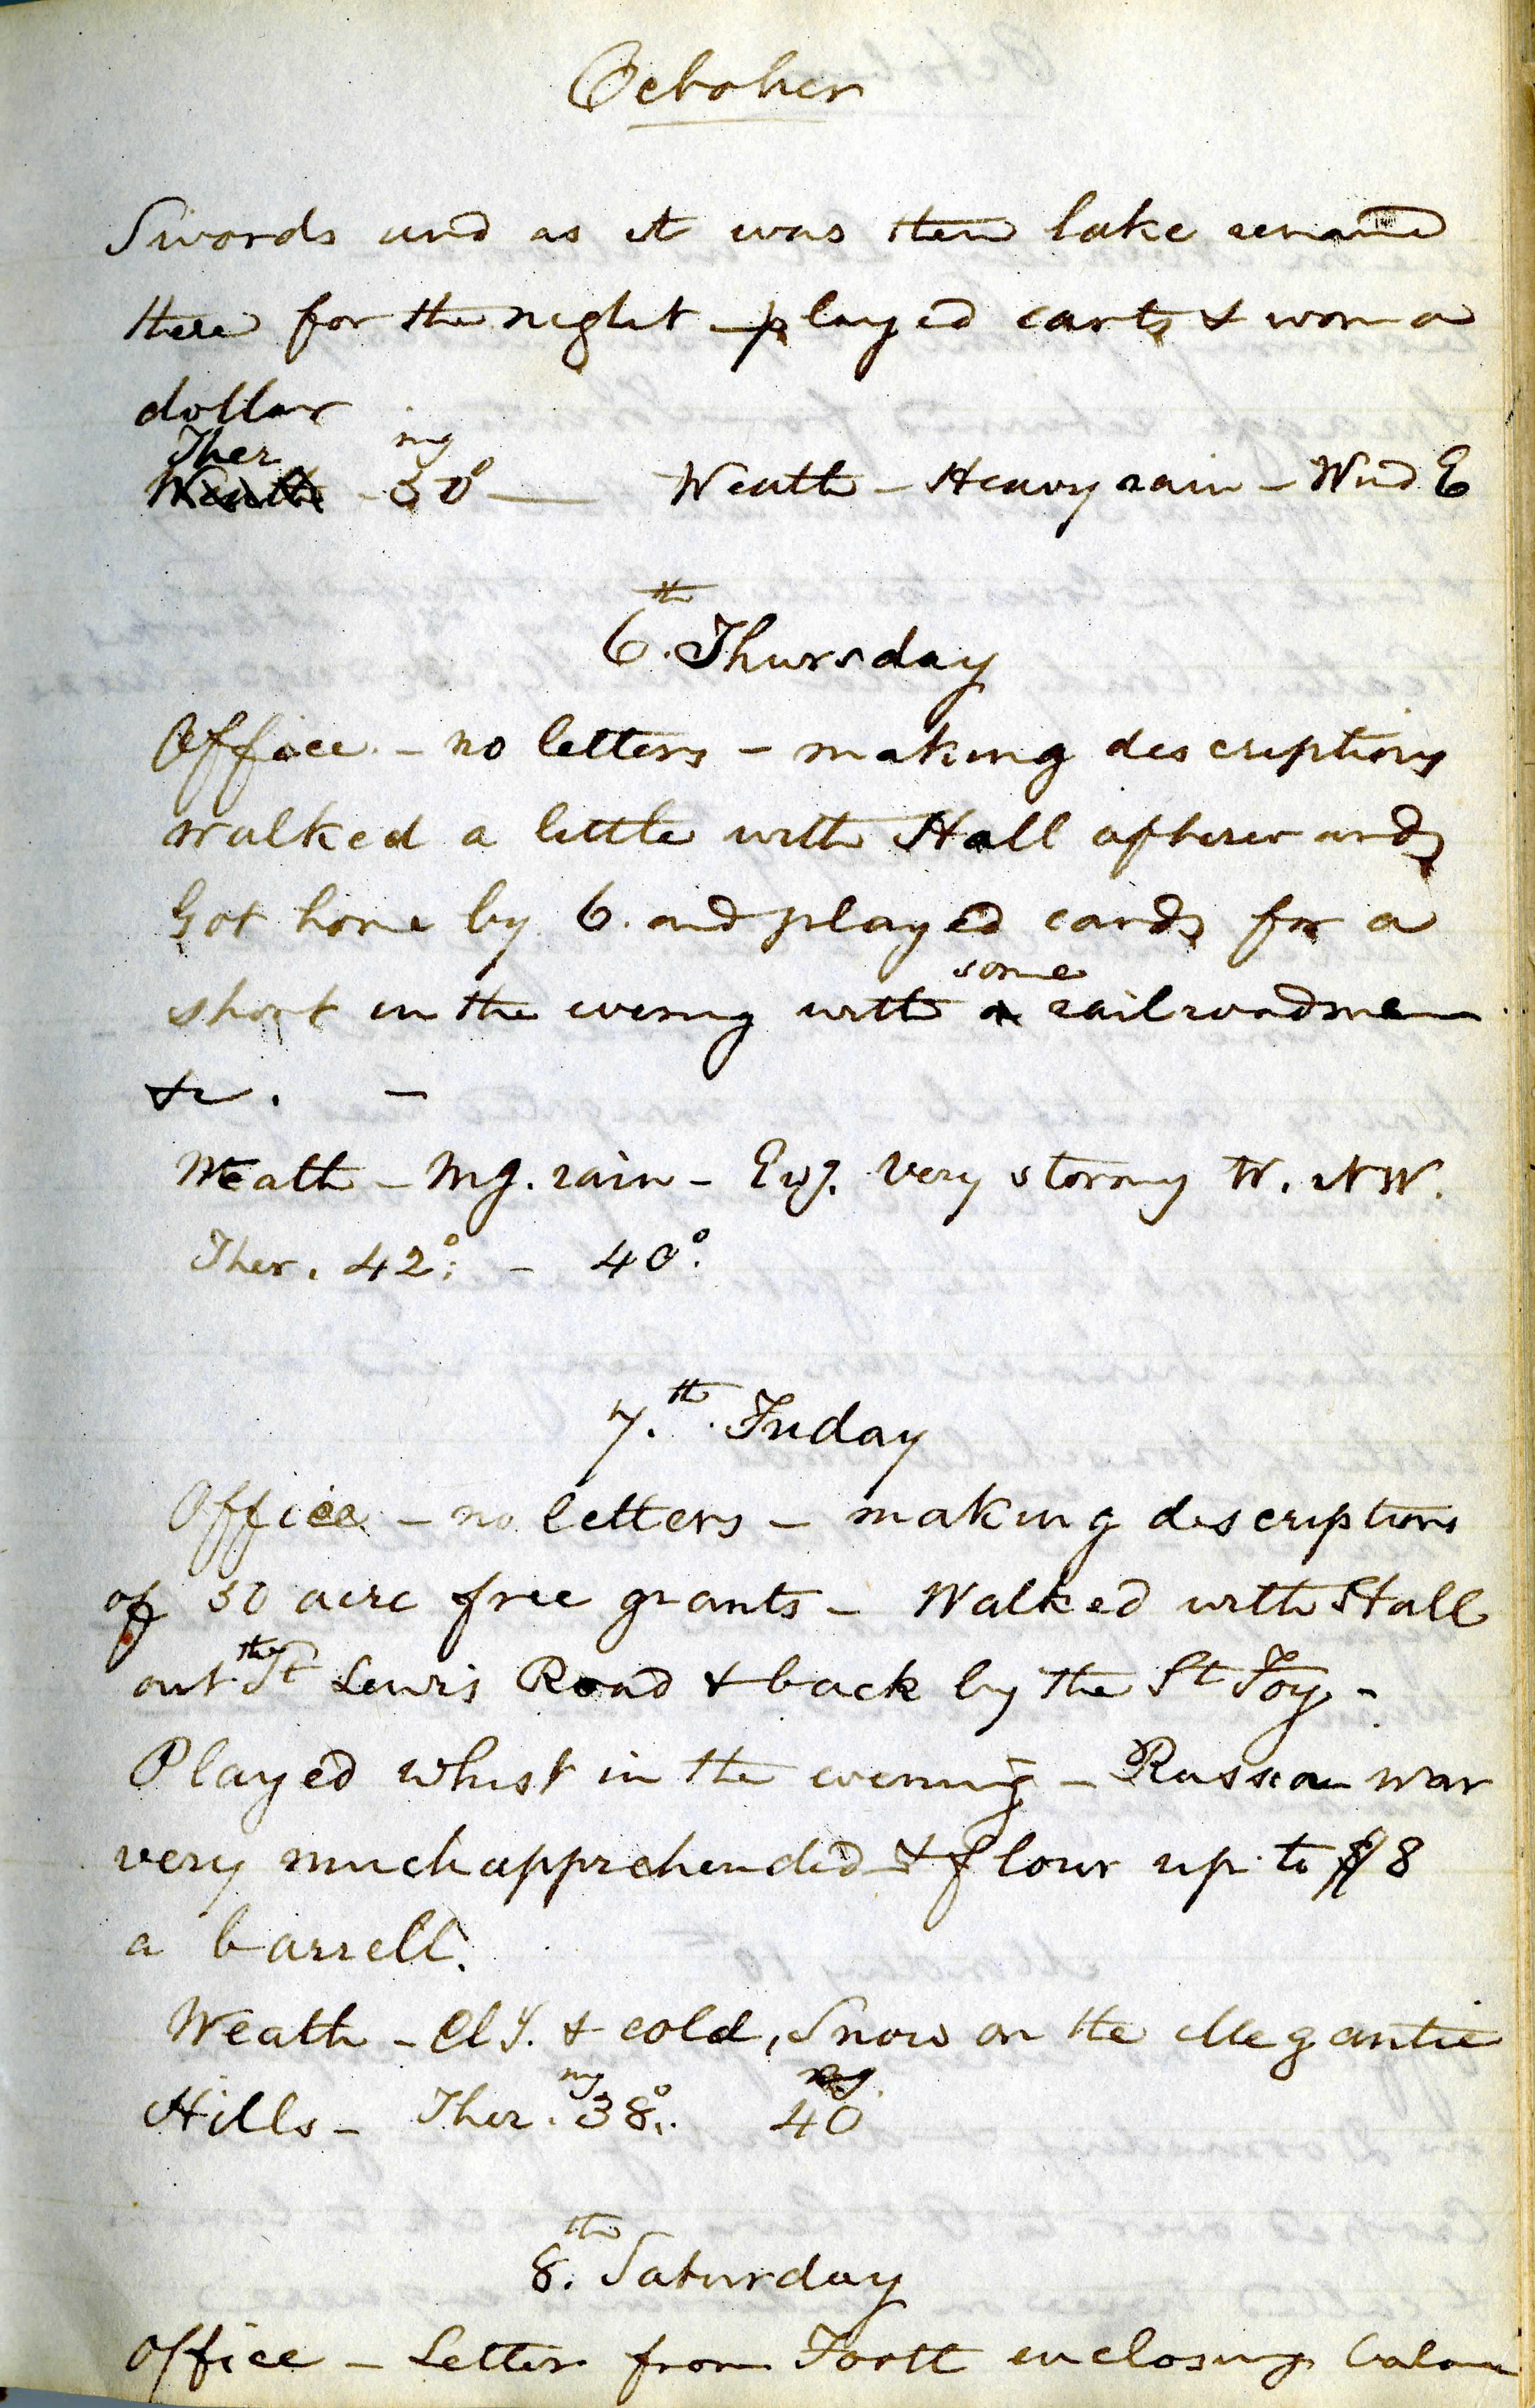 October
Swords and as it was then late remained
there for the night - played cards & won a
dollar
Ther mg
Weath - 50° — Weath - Heavy rain - Wind E
6.th Thursday
Office - no letters - making descriptions
walked a little with Hall afterwards
Got home by 6. and played cards for a
some
short in the evening with a railroadmen
&c. -
Weath - Mg. rain - Evg. very stormy W. NW.
Ther. 42°; - 40°.
7.th Friday
Office - no letters - making descriptions
of 50 acre free grants - Walked with Hall
out the St Lewis Road & back by the St Foy -
Played whist in the evening - Russian war
very much apprehended & flour up to $8
a barrell.
Weath - Cly. & cold, Snow on the Megantic
mg
Hills - Ther. 38°. 40
8.th Saturday
Office - Letter from Foott enclosing